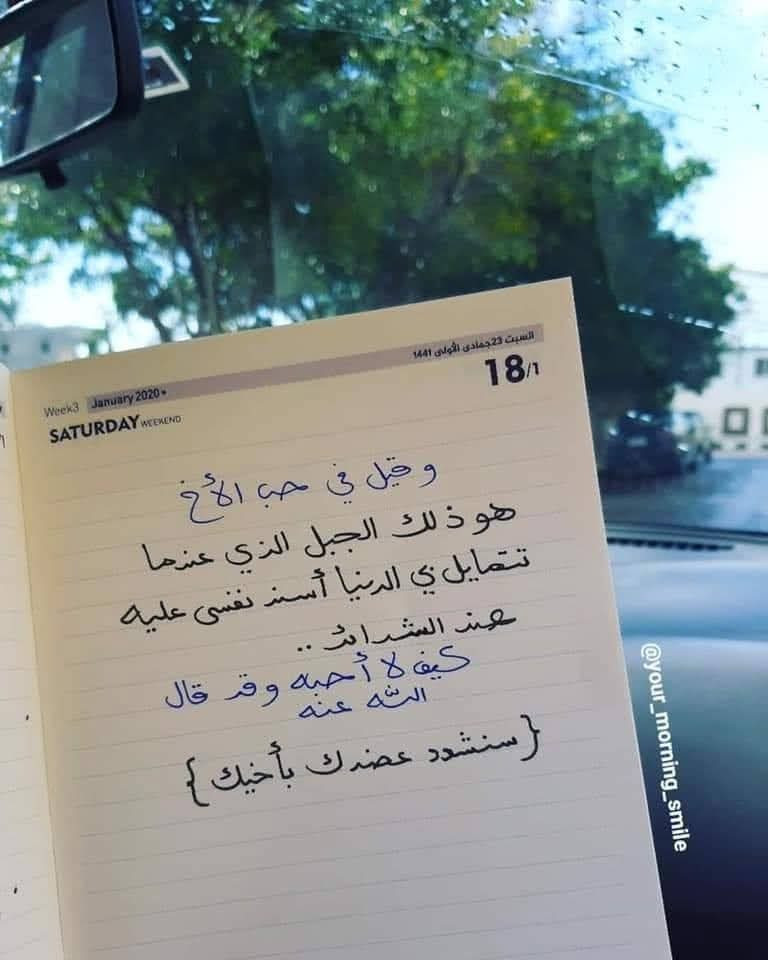 السبت 23جمادى الأولى 1441
Week3 January 2020
18/1
SATURDAY WEEKEND
وقيل في حب الأخ
هو ذلك الجبل الذي عندما
تتمايل بي الدنيا أسند نفسي عليه
عند الشدائد ..
كيف لا أحبه وقد قال
الله عنه
{سنشدد عضدك بأخيك}
@your_morning_smile